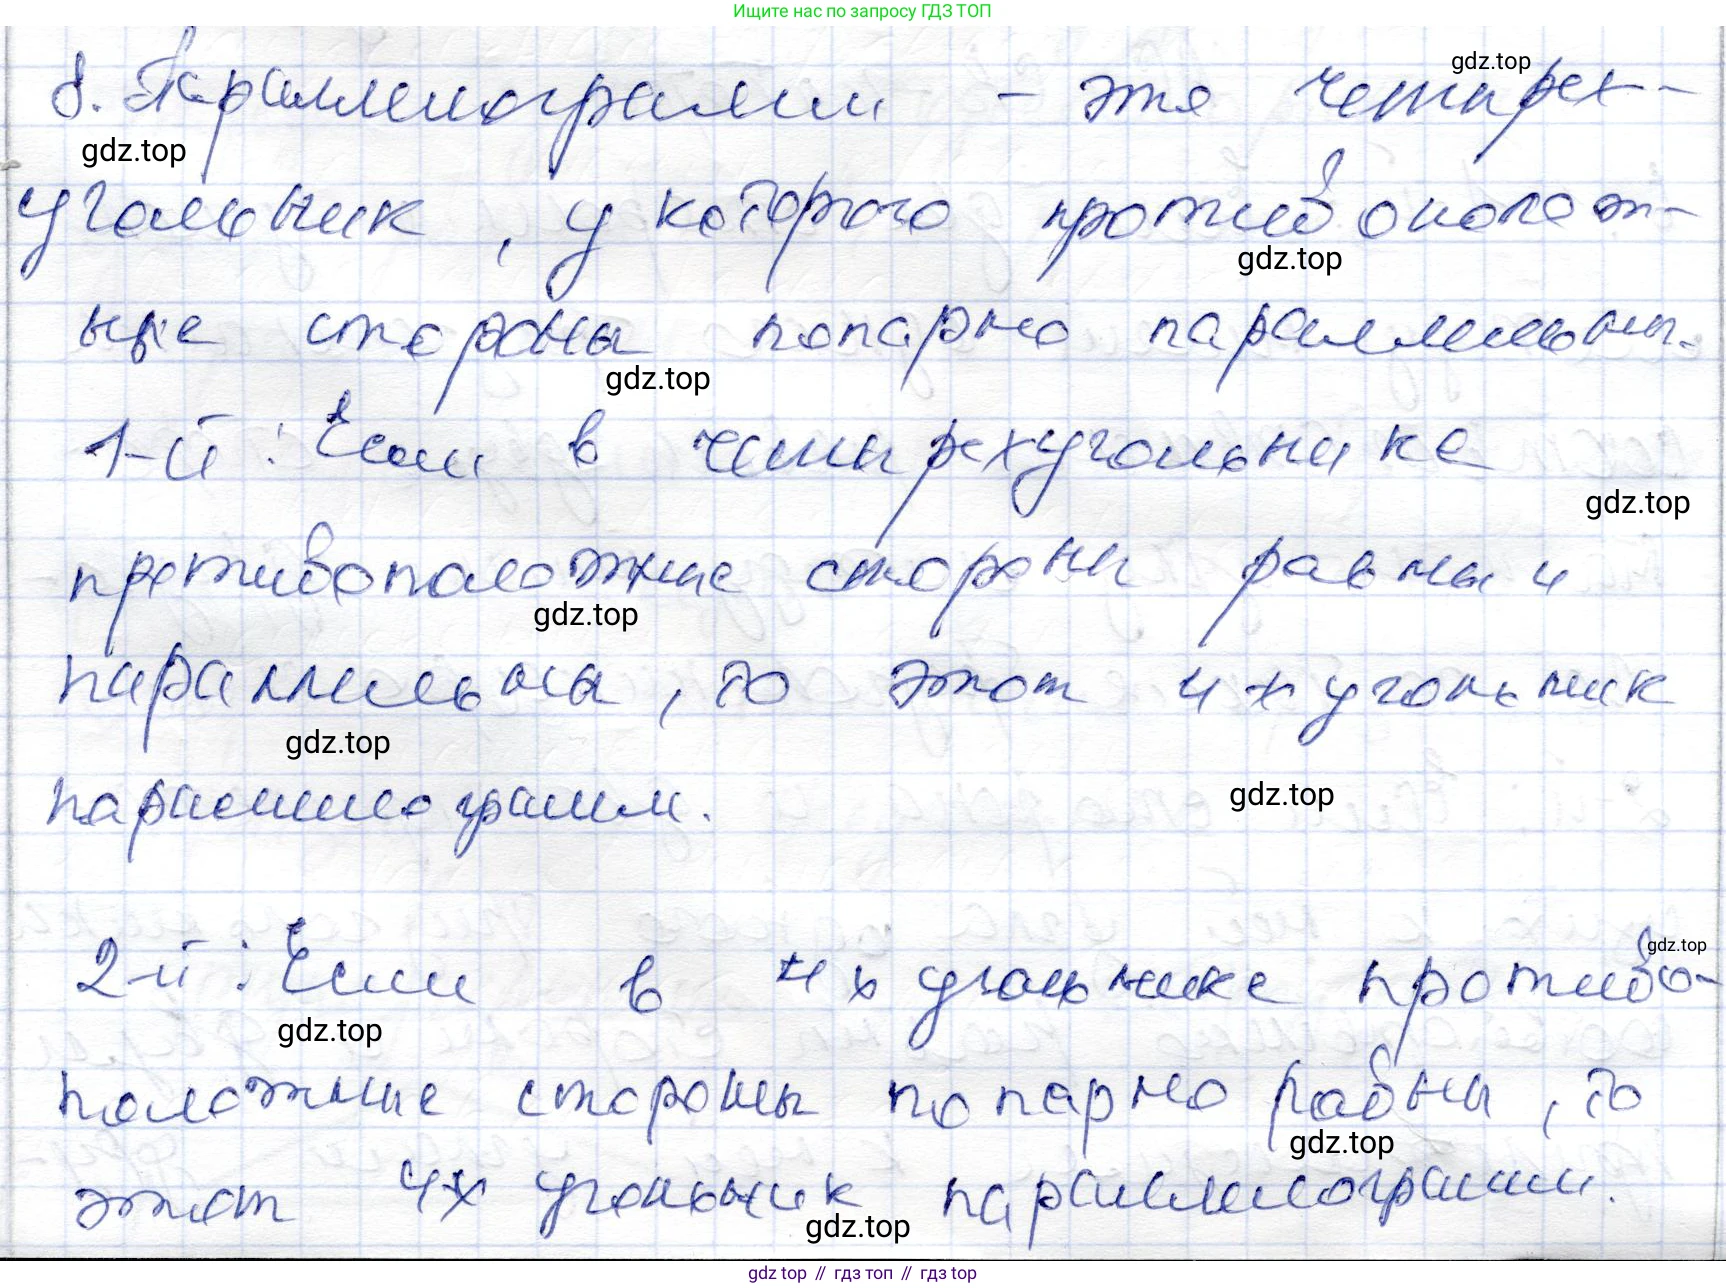 Ищите нас по запросу ГДЗ ТОП
8. Параллелограмм - это четырех-
gdz.top
gdz.top
угольник, у которого противополож-
gdz.top
ные стороны попарно параллельны.
gdz.top
1-й: Если в четырехугольнике
gdz.top
противоположные стороны равны и
gdz.top
параллельны, то этот 4х угольник
gdz.top
gdz.top
параллелограмм.
2-й: Если в 4х угольнике противо-
gdz.top
gdz.top
положные стороны попарно равны, то
gdz.top
этот 4х угольник параллелограмм.
gdz.top
gdz top // гдз топ // gdz top